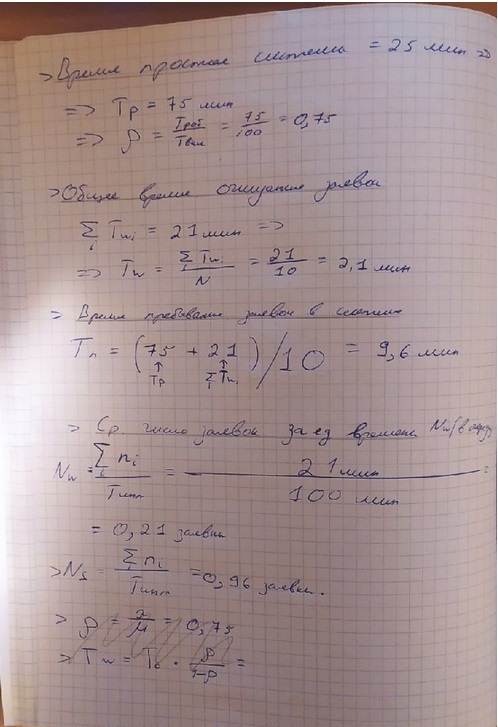 > Время простоя системы = 25 мин =>
=> Tр = 75 мин
=> ρ = Tраб/Tвып = 75/100 = 0,75
> Общее время ожидания заявок
∑i Twi = 21 мин =>
=> Tw = ∑i Twi / N = 21/10 = 2,1 мин
> Время пребывания заявок в системе
Tп = (75 + 21)/10 = 9,6 мин
↑ ↑
Tр ∑i Twi
> Ср. число заявок за ед времени Nw (в очер
Nw = ∑i ni / Tипп = 21 мин / 100 мин =
= 0,21 заявки
> Ns = ∑i ni / Tипп = 0,96 заявки.
> ρ = λ/μ = 0,75
> Tw = Tс · ρ/1-ρ =